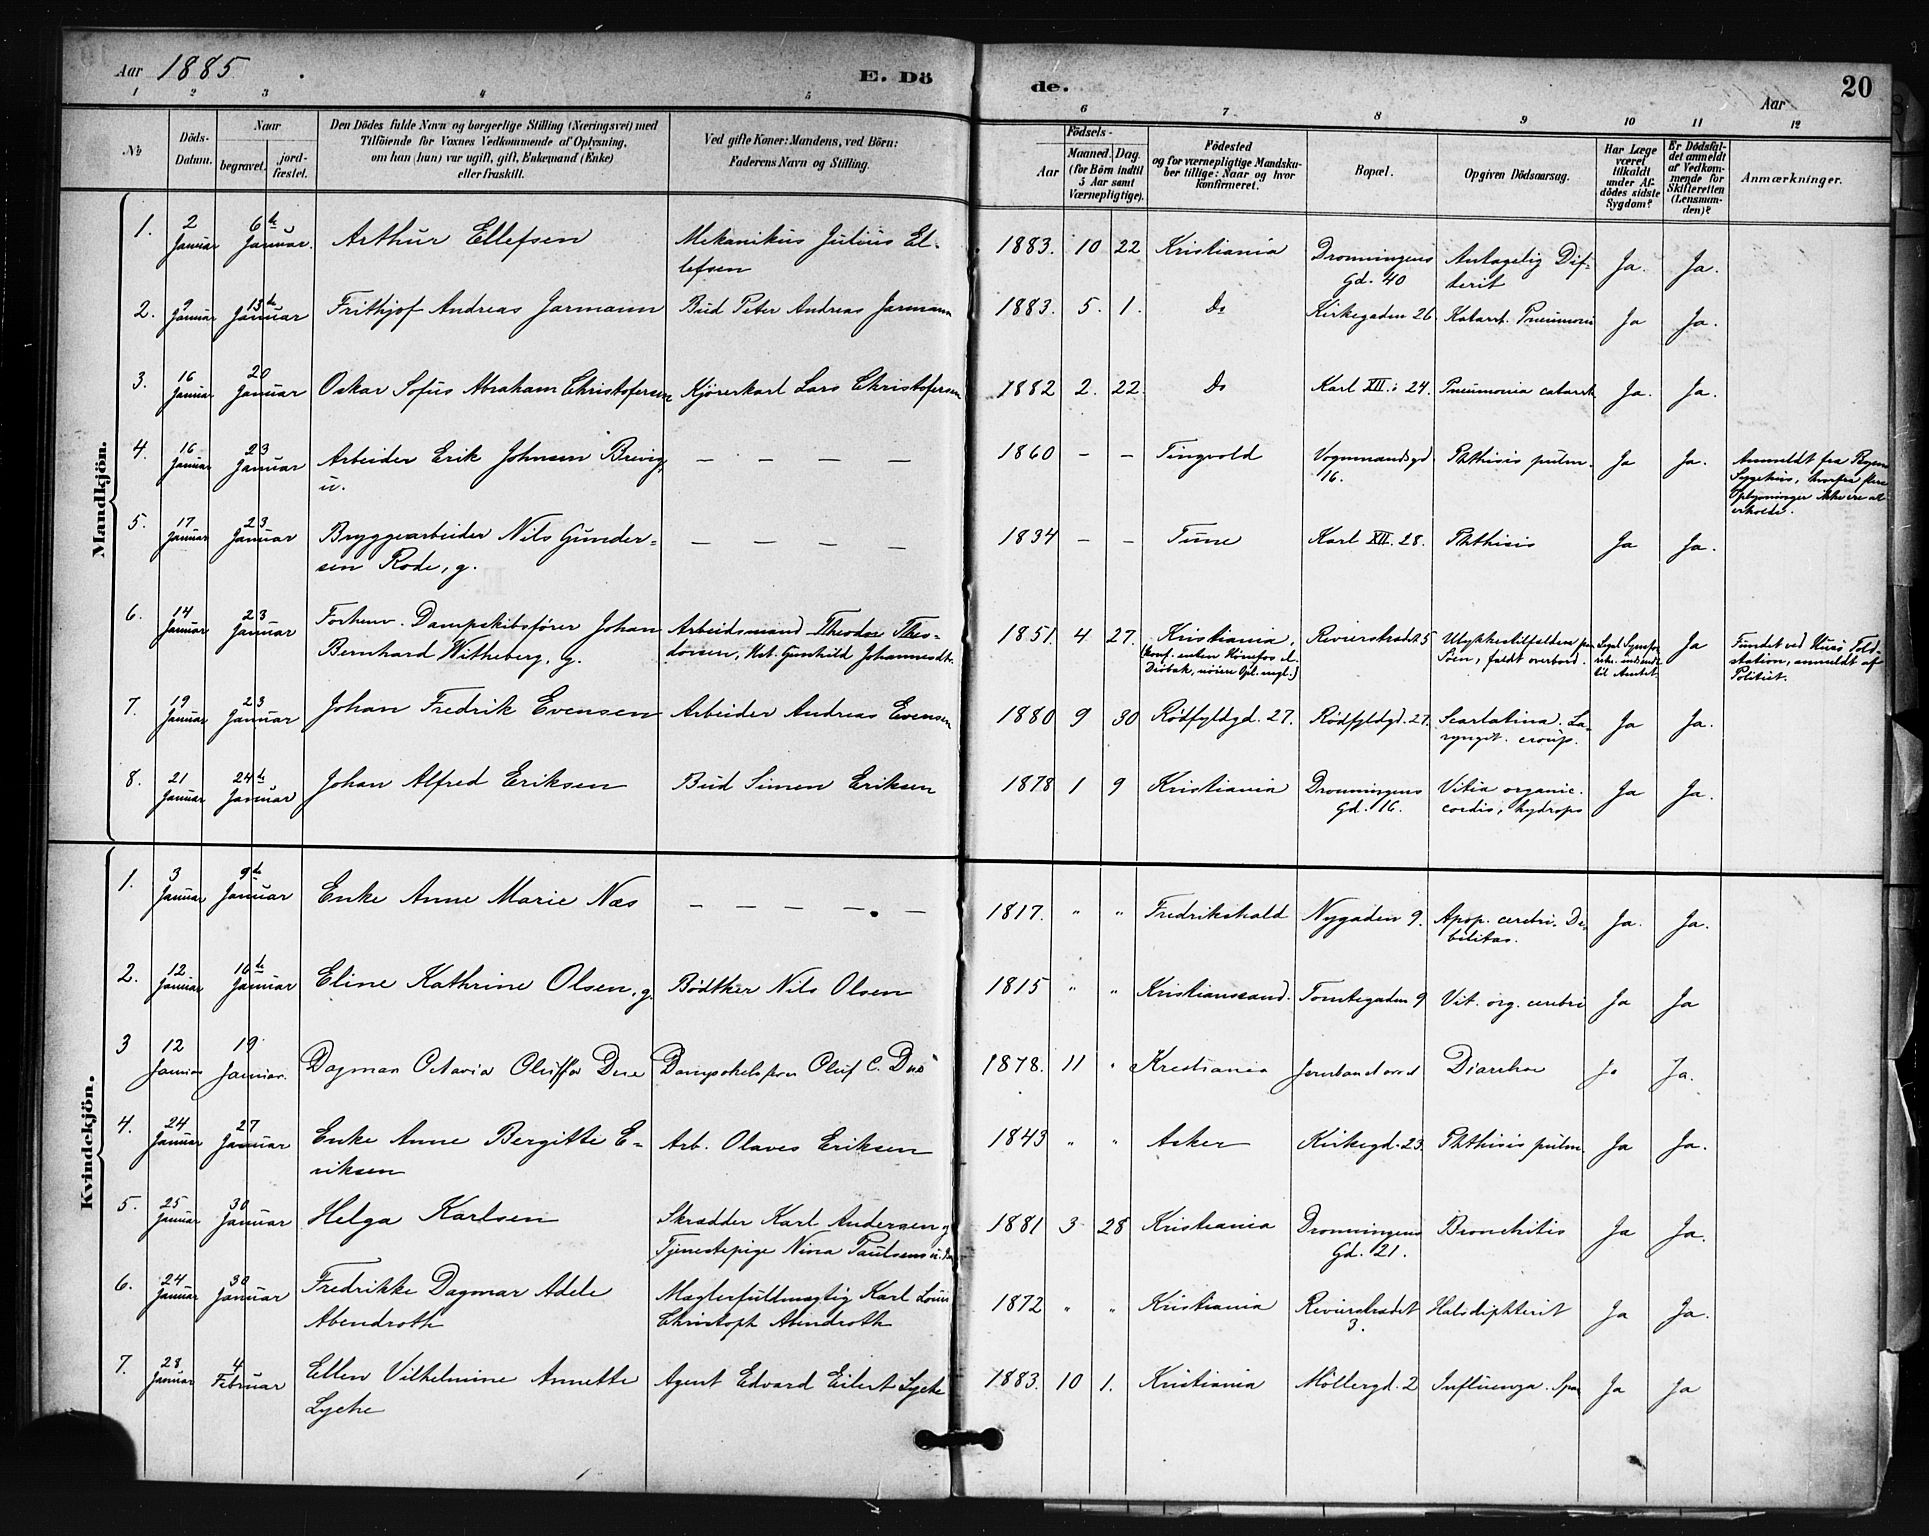 Aar 1885. E. Dö de. Aar 20
1 2 3 4 5 6 7 8 9 10 11 12
No Döds-Datum. Naar begravet. jord-fæstet. Den Dödes fulde Navn og borgerlige Stilling (Næringsvei) med Tilföiende for Voxnes Vedkommende af Oplysning, om han (hun) var ugift, gift, Enkemand (Enke) eller fraskilt. Ved gifte Koner: Mandens, ved Börn: Faderens Navn og Stilling. Födsels- Aar Maaned. Dag. (for Börn indtil 5 Aar samt Værnepligtige). Födested og for værnepligtige Mandskaber tillige: Naar og hvor konfirmeret. Bopæl. Opgiven Dödsaarsag. Har Læge været tilkaldt under Afdödes sidste Sygdom? Er Dödsfaldet anmeldt af Vedkommende for Skifteretten (Lensmanden)? Anmærkninger.
Mandkjön.
1. 2 Januar 6te Januar. Arthur Ellefsen Mekanikus Julius El-
lefsen 1883. 10 22 Kristiania Dronningens Gd. 40 Antagelig Dif-
terit Ja. Ja.
2. 9 Januar 13te Januar Frithjof Andreas Jarmann Bud Peter Andreas Jarmann 1883. 5. 1. Do Kirkegaden 26. Katarrh. Pneumoni Ja Ja.
3. 16 Januar 20 Januar Oskar Sofus Abraham Christofersen Kjörerkarl Lars Christofersen 1882 2. 22. Do Karl XII. 24. Pneumonia catarrh Ja. Ja.
4. 16 Januar 23 Januar Arbeider Erik Johnsen Brevig,
u. — — — — 1860 — — Tingvold Vognmandsgd 16. Phthisis pulm. Ja Ja. Anmeldt fra
Sygehus, hvorfra flere
Oplysninger ikke ere at
erholde.
5. 17 Januar 23 Januar Bryggearbeider Nils Gunder-
sen Rode, g. — — — — 1834 — — Tune Karl XII. 28. Phthisis Ja Ja.
6. 14 Januar 23 Januar Forhenv. Dampskibsförer Johan
Bernhard Witheberg, g. Arbeidsmand Theodor Theo-
dorsen, Gunhild Johannesdt. 1851. 4 27. Kristiania,
(konf. enten Hönefos el.
Dröbak, nöiere Opl. mgl.) Revierstrædet 5 Ulykkestilfælde paa
Söen, faldt overbord.
til Amtet. Ja Fundet ved Told-
station, anmeldt af
Politiet.
7. 19 Januar 23 Januar Johan Fredrik Evensen Arbeider Andreas Evensen 1880 9 30 Rödfyldgd. 27. Rödfyldgd. 27. Scarlatina. La-
ryngit. croup. Ja Ja.
8. 21 Januar 24de Januar Johan Alfred Eriksen Bud Simen Eriksen 1878 1 9 Kristiania Dronningens Gd. 16. Vitia organic.
cordis, hydrops Ja Ja.
Kvindekjön.
1. 3 Januar 9de Januar Enke Anne Marie Næs — — — — — 1817. " " Fredrikshald Nygaden 9. Apop. cerebri. De-
bilitas. Ja. Ja.
2. 12 Januar 16de Januar Eline Kathrine Olsen, g. Bödtker Nils Olsen 1815 " " Kristianssand. Tomtegaden 9 Vit. org. cerebri Ja Ja
3 12 Januar 19 Januar. Dagmar Octavia Oluffa Due Oluf C. Due 1878. 11 " Kristiania Diarrhoe Ja Ja.
4. 24 Januar 27 Januar Enke Anne Bergitte E-
riksen Arb. Olaves Eriksen 1843 " " Asker Kirkegd. 23. Phthisis pulm. Ja Ja.
5. 25 Januar 30 Januar Helga Karlsen Skrædder Karl Andersen og
Tjenestepige Nina Paulsen 1881 3 28 Kristiania Dronningens Gd. 21. Bronchitis Ja Ja.
6. 24 Januar 30 Januar Fredrikke Dagmar Adele
Abendroth Mæglerfuldmægtig Karl Louis
Christoph Abendroth 1872 " " Kristiania Revierstrædet 3. Halsdiphterit Ja Ja.
7. 28 Januar 4 Februar Ellen Vilhelmine Annette
Lyche Agent Edvard Eilert Lyche 1883. 10 1. Kristiania Möllergd. 2 Influenza. Ja Ja